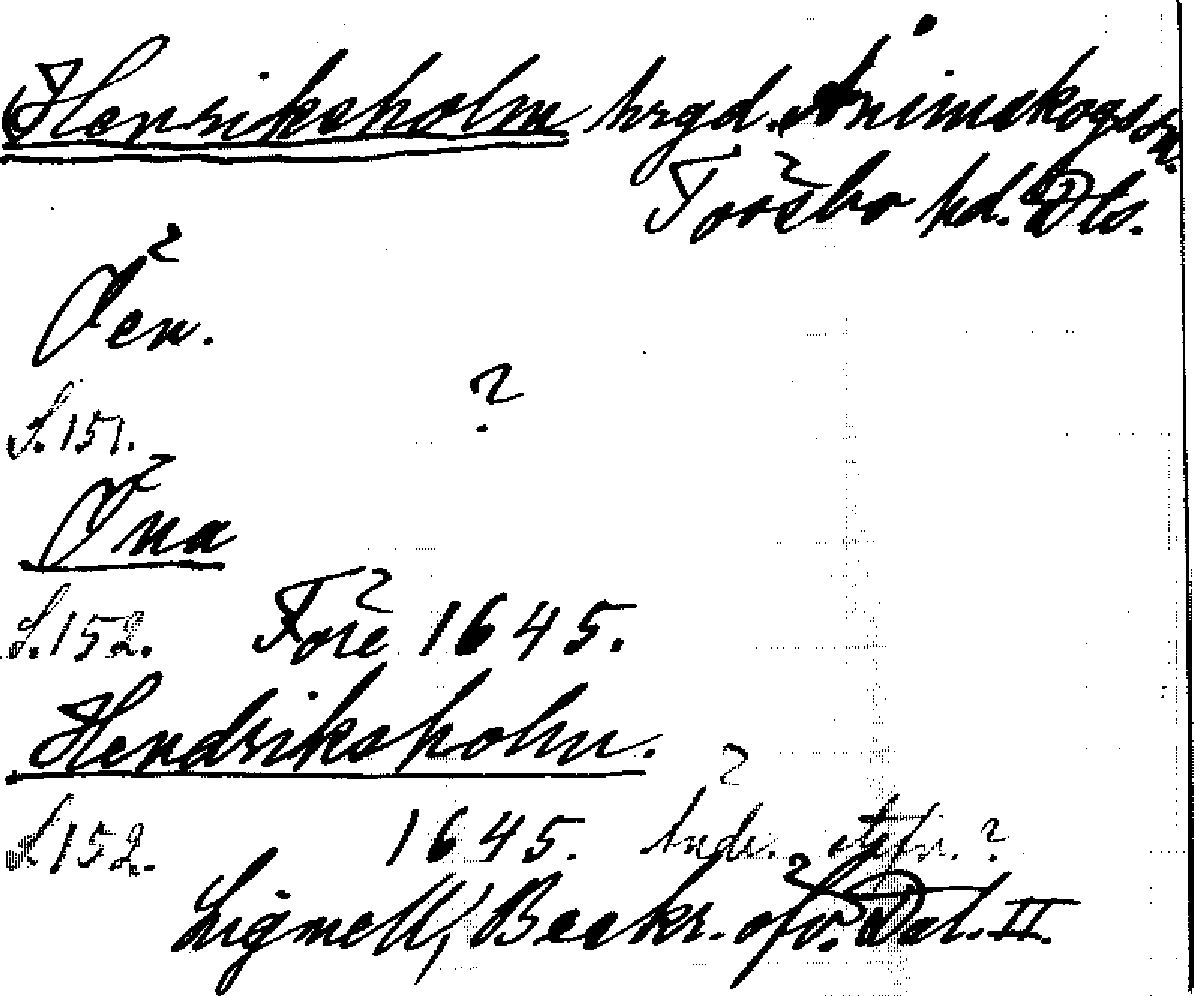 (Henriksholm hrgd. Ånimskogs sn.
Tössbo hd. Dls.
Öen.
S. 151. ?
Öna
S. 152. Före 1645.
Hendriksholm.
S. 152. 1645. ?
Lignell, Beskr. öfv. Dal. II.